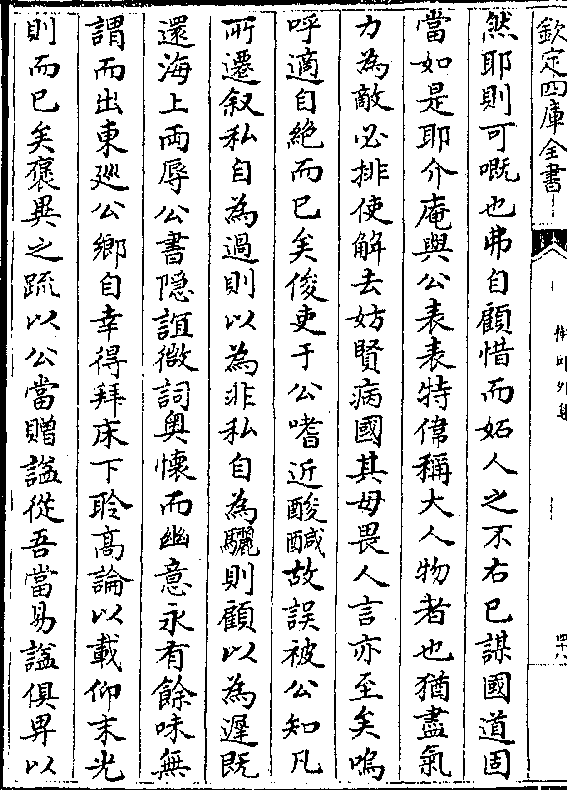 欽定四庫全書
四十八
然耶則可嘅也弗自顧惜而妬人之不右已謀國道固
當如是耶介庵與公表表特偉稱大人物者也猶盡氣
力為敵必排使解去妨賢病國其毋畏人言亦至矣嗚
呼適自絶而已矣俊吏于公嗜近酸醎故誤被公知凡
所遷叙私自為過則以為非私自為驪則顧以為遲既
還海上兩辱公書隠誼微詞奥懐而幽意永有餘味無
謂而出東廵公鄉自幸得拜床下聆髙論以載仰末光
則而已矣襃異之疏以公當贈諡從吾當易諡俱畀以